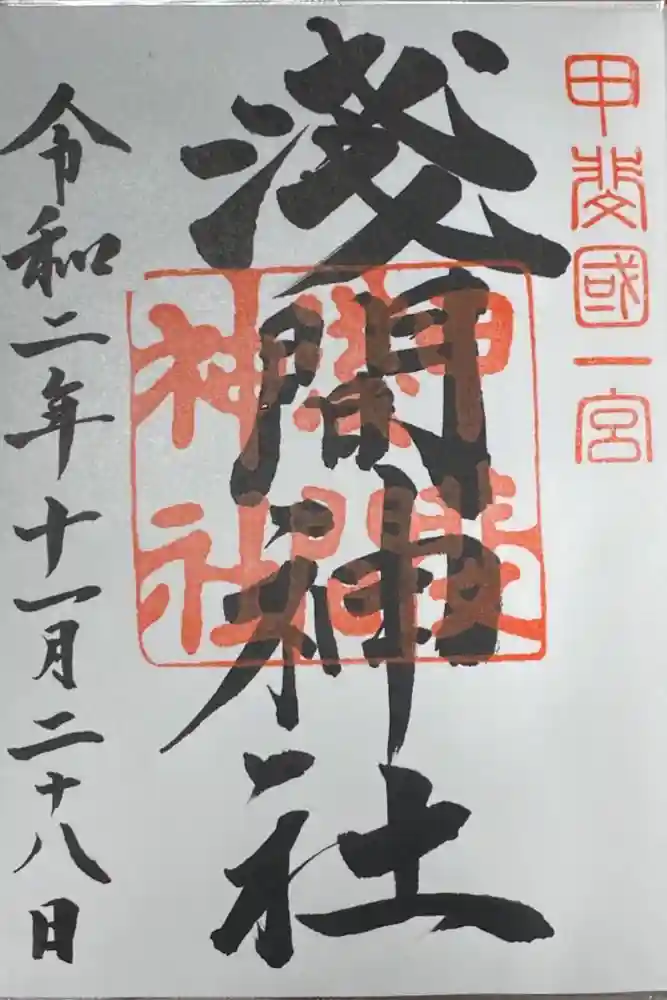 甲斐國一宮
淺間神社
甲斐
神社
令和二年十一月二十八日